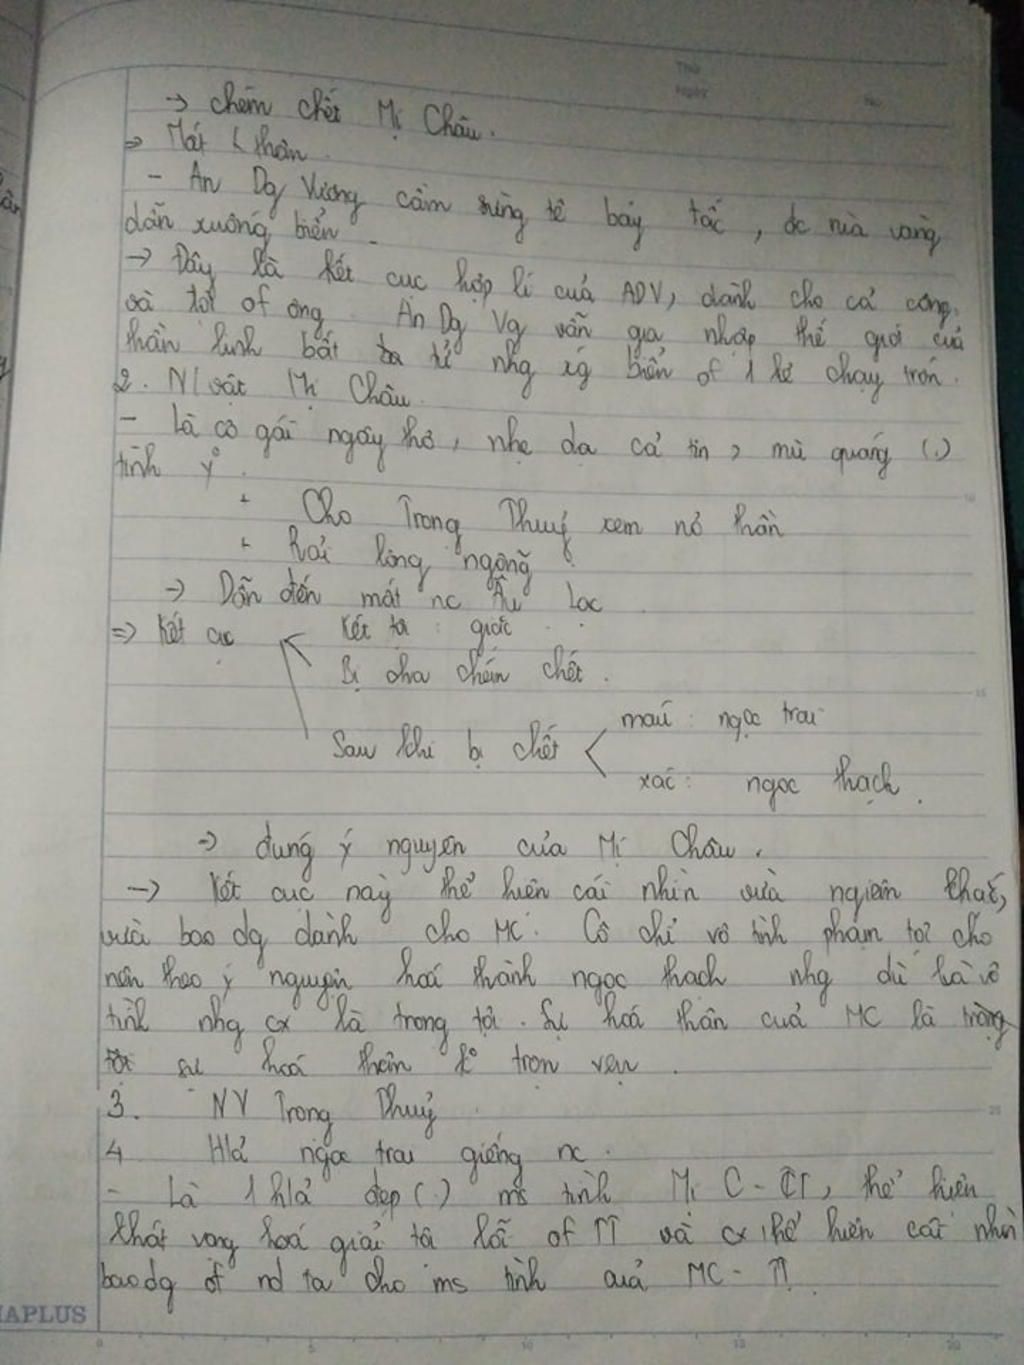 → chém chết Mị Châu.
⇒ Mất < thân.
- An Dg Vương cầm sừng tê bảy tấc, đc rùa vàng
dẫn xuống biển.
→ Đây là kết cục hợp lí của ADV, dành cho cả công
và tội of ông. An Dg Vg vẫn gia nhập thế giới của
thần linh bất tử nhg xg biển of 1 kẻ chạy trốn.
2. N/vật Mị Châu.
- Là cô gái ngây thơ, nhẹ dạ cả tin, mù quáng (.)
tình y.
+ Cho Trong Thuỷ xem nỏ thần
+ Rải lông ngỗng
→ Dẫn đến mất nc Âu Lạc.
⇒ Kết cục Kết tội: giặc.
Bị cha chém chết.
Sau khi bị chết máu: ngọc trai
xác: ngọc thạch.
⇒ đúng ý nguyện của Mị Châu.
→ Kết cục này thể hiện cái nhìn vừa ngiêm khắc,
vừa bao dg dành cho MC. Cô chỉ vô tình phạm tội cho
nên theo ý nguyện hoá thành ngọc thạch nhg dù là vô
tình nhg cx là trọng tội. Sự hoá thân của MC là
sự hoá thân k° trọn vẹn.
3. NV Trọng Thuỷ.
4 H/ả ngọc trai giếng nc.
- Là 1 h/ả đẹp (.) ms tình Mị C - TT, thể hiện
khát vọng hoá giải tội lỗi of TT và cx thể hiện cái nhìn
bao dg of nd ta cho ms tình của MC - TT.
APLUS